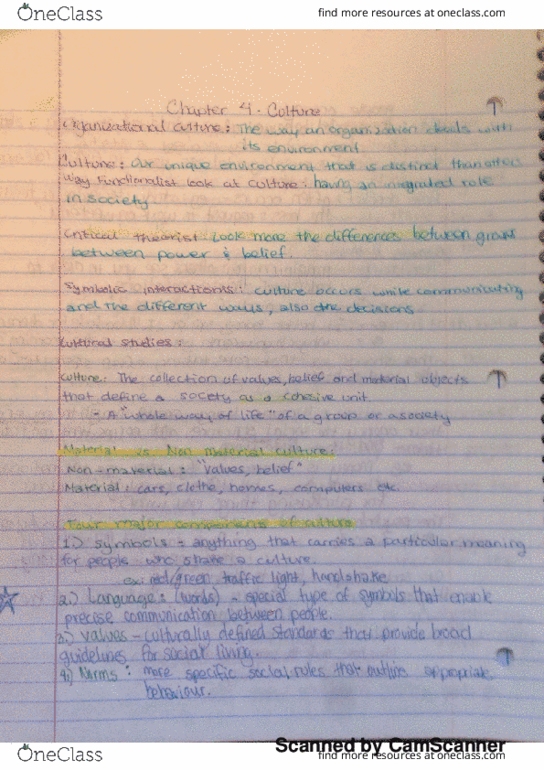 OneClass
find more resources at oneclass.com
Chapter 4 - Culture
Organizational culture: The way an organization deals with
its environment
Culture: Our unique environment that is distinct than other
way Functionalist look at Culture: having an integrated role
in society.
Critical theorist: Look more the differences between groups
between power & belief.
Symbolic interactionists: culture occurs while communicating
and the different ways, also the decisions
Cultural studies:
Culture: The collection of values, belief and material objects
that define a society as a cohesive unit
- A "whole way of life" of a group or a society
Material vs Non material culture:
Non-material: "values, belief"
Material: cars, clothe, homes, computers etc.
Four major components of culture
1.) Symbols = anything that carries a particular meaning
for people who share a culture.
ex: red/green traffic light, handshake
2.) Language: (words) - special type of symbols that enable
precise communication between people.
3.) Values - culturally defined standards that provide broad
guidelines for social living.
4.) Norms: more specific social rules that outline appropriate
behaviour.
Scanned by CamScanner
OneClass
find more resources at oneclass.com